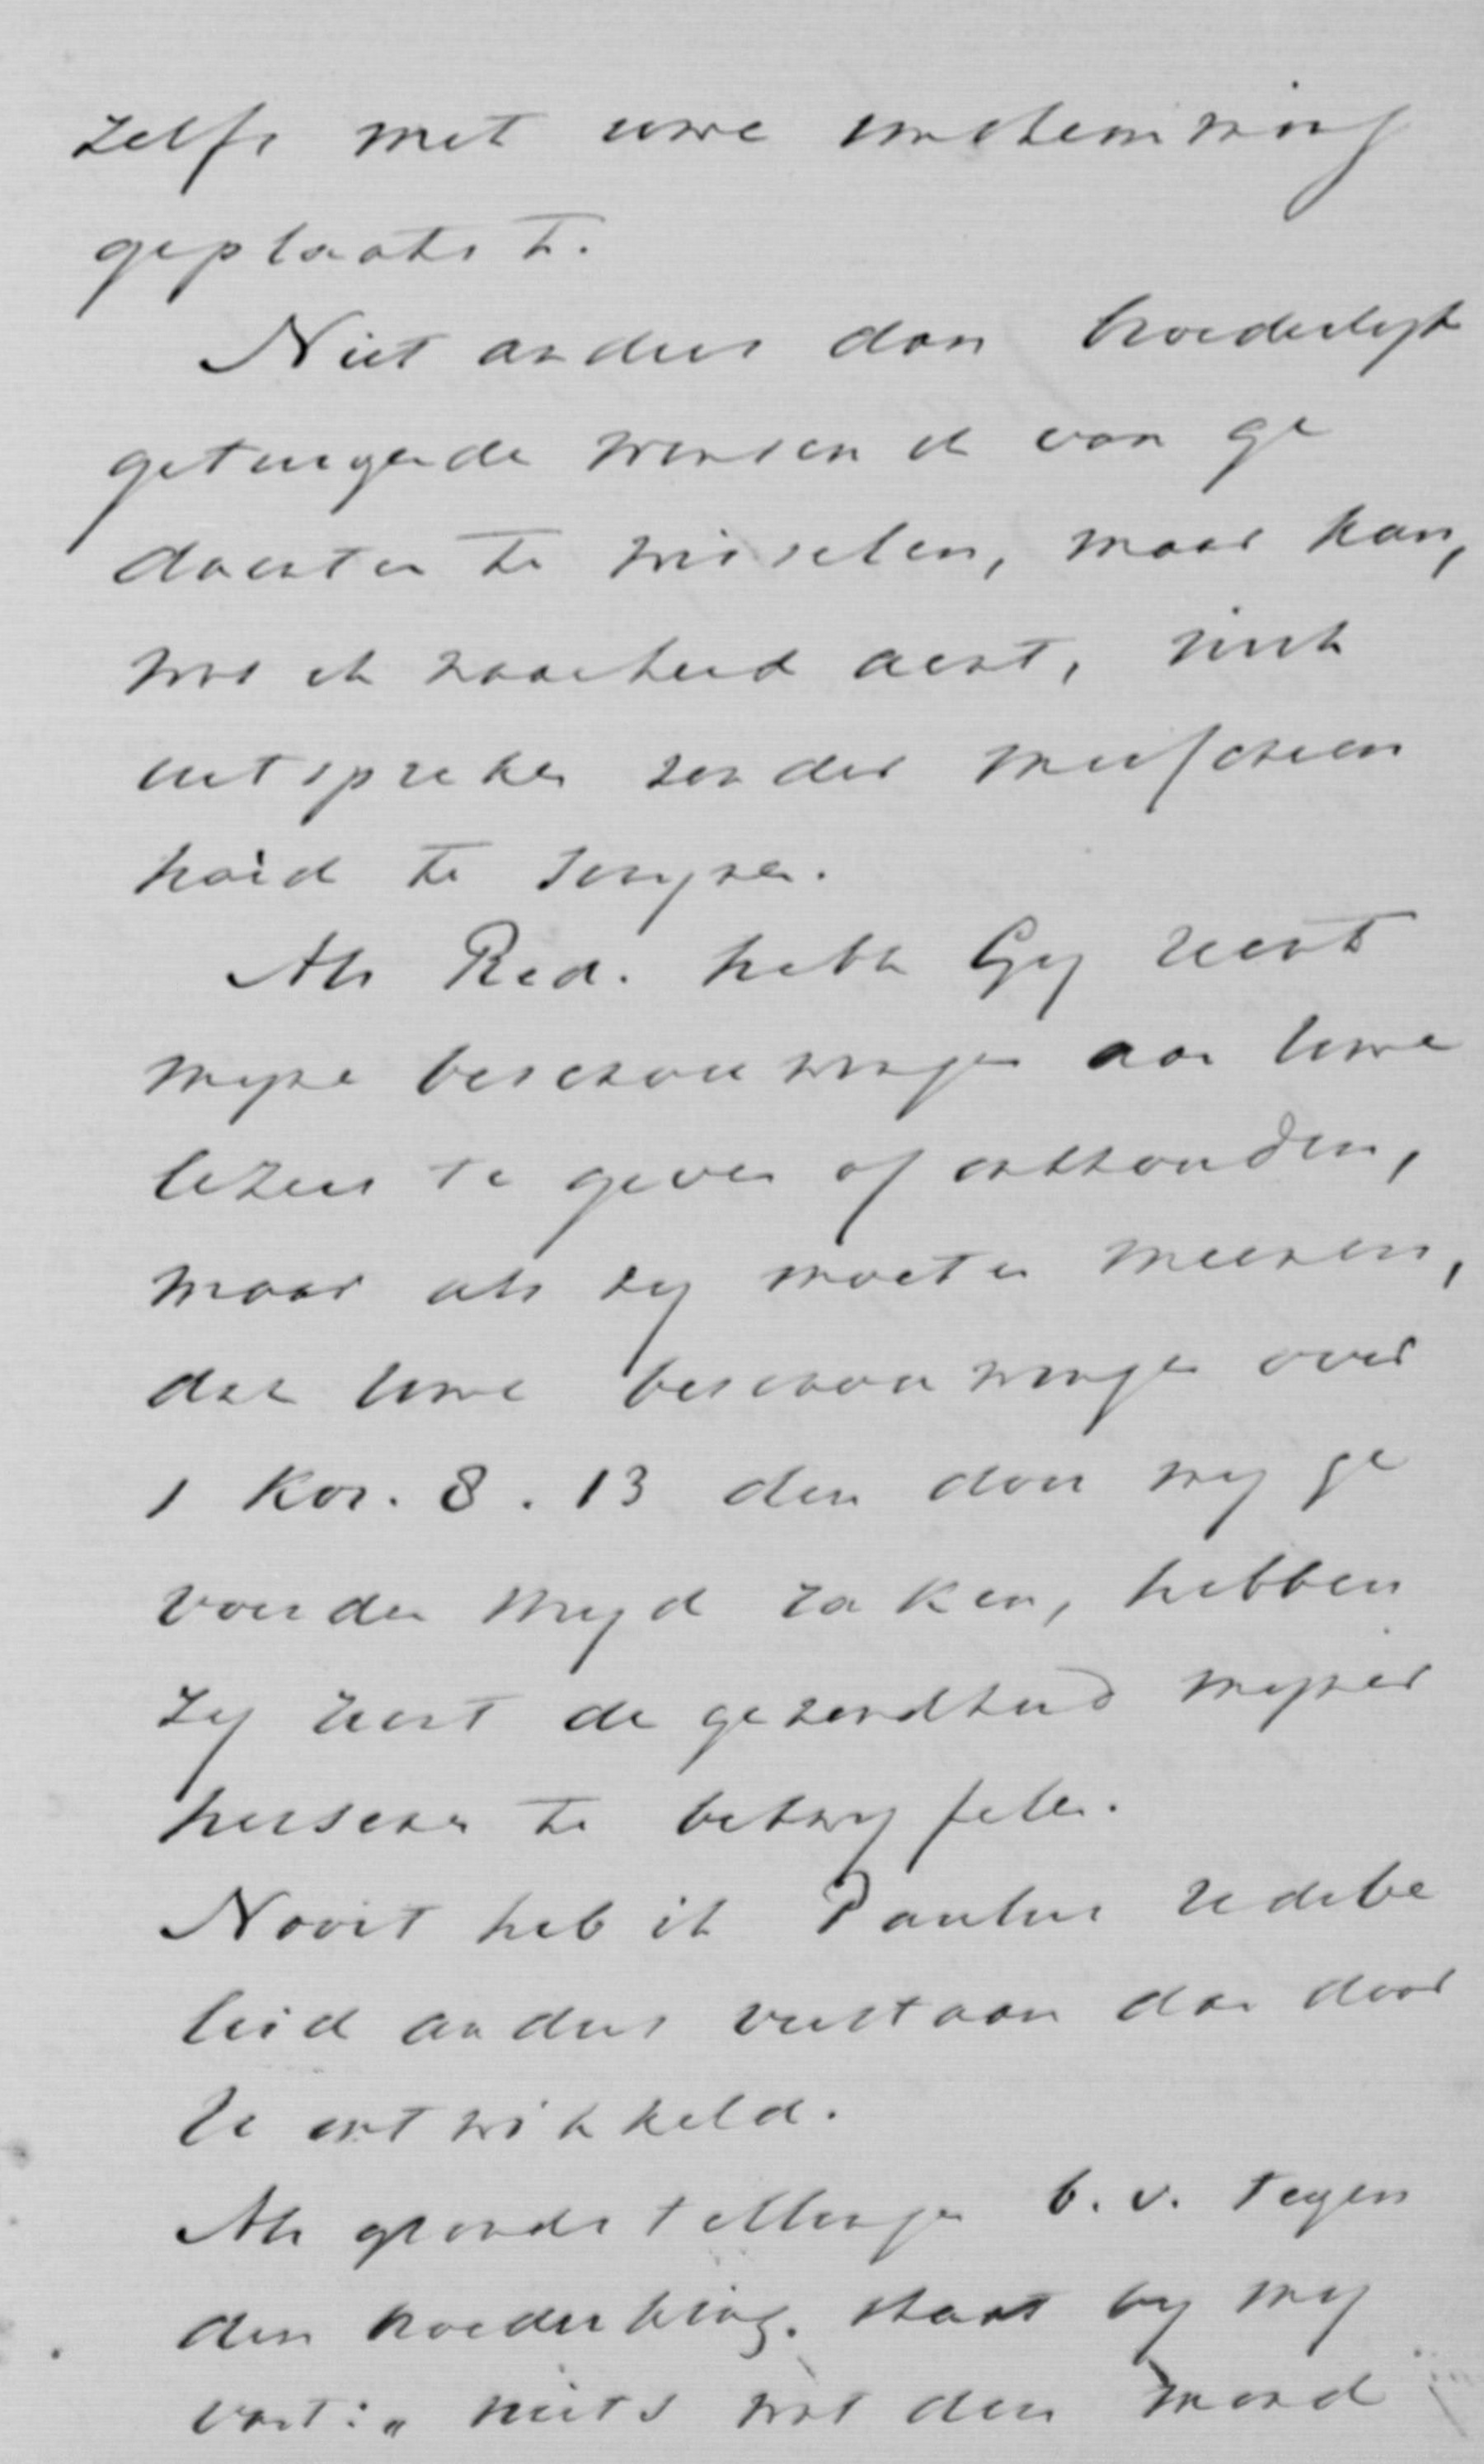 zelfs met uwe instemming
geplaatst.
Niet anders dan broederlijk
getuigende wensch ik van ge
dachten te wisselen, maar kan,
wat ik waarheid acht, niet
uitspreken zonder
heid te
Als Red. hebt Gij recht
mijne beschouwingen aan Uwe
lezers te geven of onthouden,
maar als zij moeten meenen,
dat Uwe beschouwingen over
1 Kor. 8.13 den door mij ge
voerden strijd raken, hebben
zij recht de gezondheid mijner
hersenen te betwijfelen.
Nooit heb ik Paulus redebe
leid anders verstaan dan door
U ontwikkeld.
Als grondstellingen b.v. tegen
den broederkring. staat bij mij
vast: „niets wat den mond